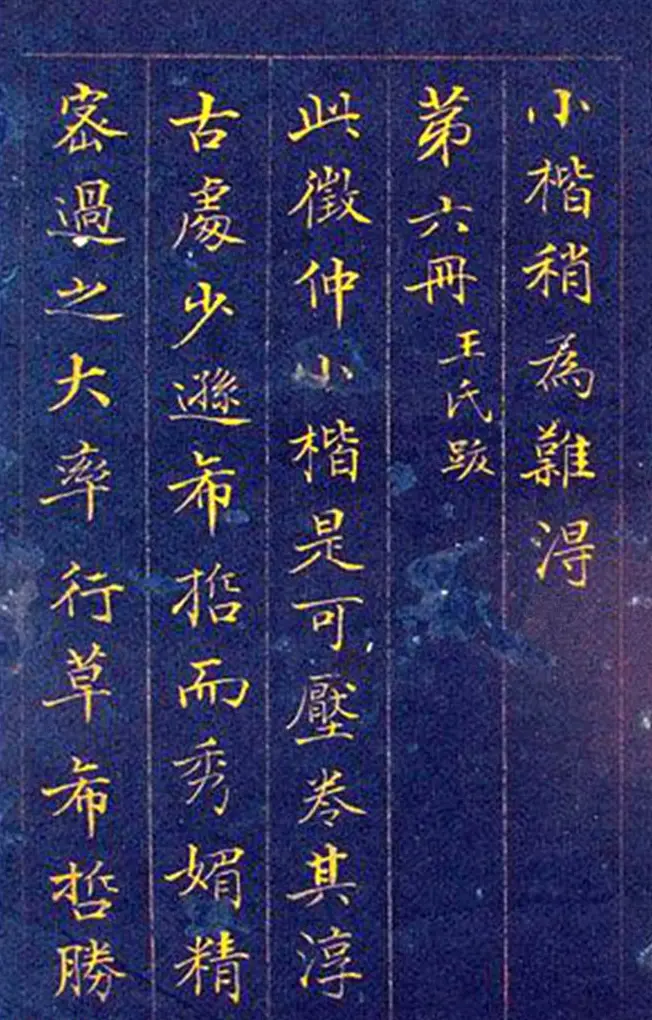 小楷稍為難得
第六冊 王氏跋
此徵仲小楷是可壓卷其淳
古處少遜希哲而秀媚精
密過之大率行草希哲勝